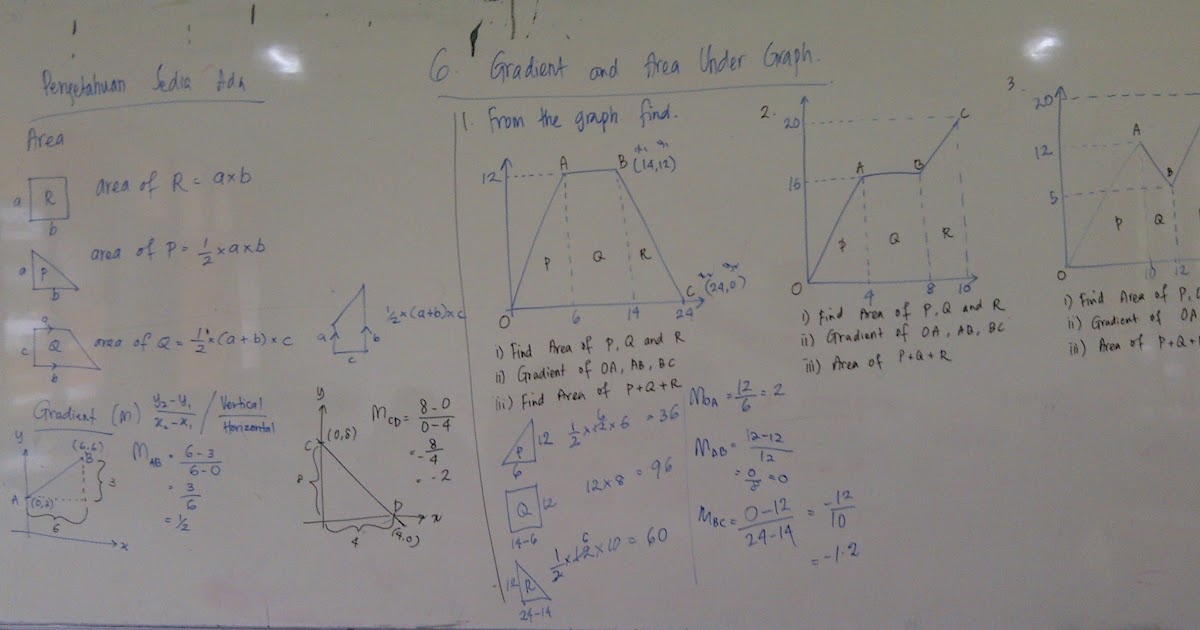 Pengetahuan Sedia Ada
Area
a
R
b
area of R = a×b
a
P
b
area of P = 1/2 × a × b
a
c
Q
b
area of Q = 1/2 × (a + b) × c
a
b
c
1/2 × (a+b) × c
Gradient (m) y₂-y₁/x₂-x₁ / Vertical/Horizontal
y
(6,6)
B
3
A
6
x
M_AB = 6-3/6-0
= 3/6
= 1/2
y
C
(0,8)
D
x
4
M_CD = 8-0/0-4
= -8/4
= -2
6. Gradient and Area Under Graph.
1. From the graph find.
12
A
B (14,12)
P
Q
R
C (24,0)
O
6
14
24
i) Find Area of P, Q and R
ii) Gradient of OA, AB, BC
iii) Find Area of P+Q+R
P
12
6
1/2 × 12 × 6 = 36
6
Q
12
14-6
12×8 = 96
12
R
24-14
1/2 × 12 × 10 = 60
6
M_OA = 12/6 = 2
M_AB = 12-12/12
= 0/8 = 0
M_BC = 0-12/24-14 = -12/10
= -1.2
2.
20
C
16
A
B
P
Q
R
O
4
8
10
i) Find Area of P, Q and R
ii) Gradient of OA, AB, BC
iii) Area of P+Q+R
3.
20
12
A
5
B
P
Q
O
10
12
i) Find Area of P,
ii) Gradient of OA
iii) Area of P+Q+